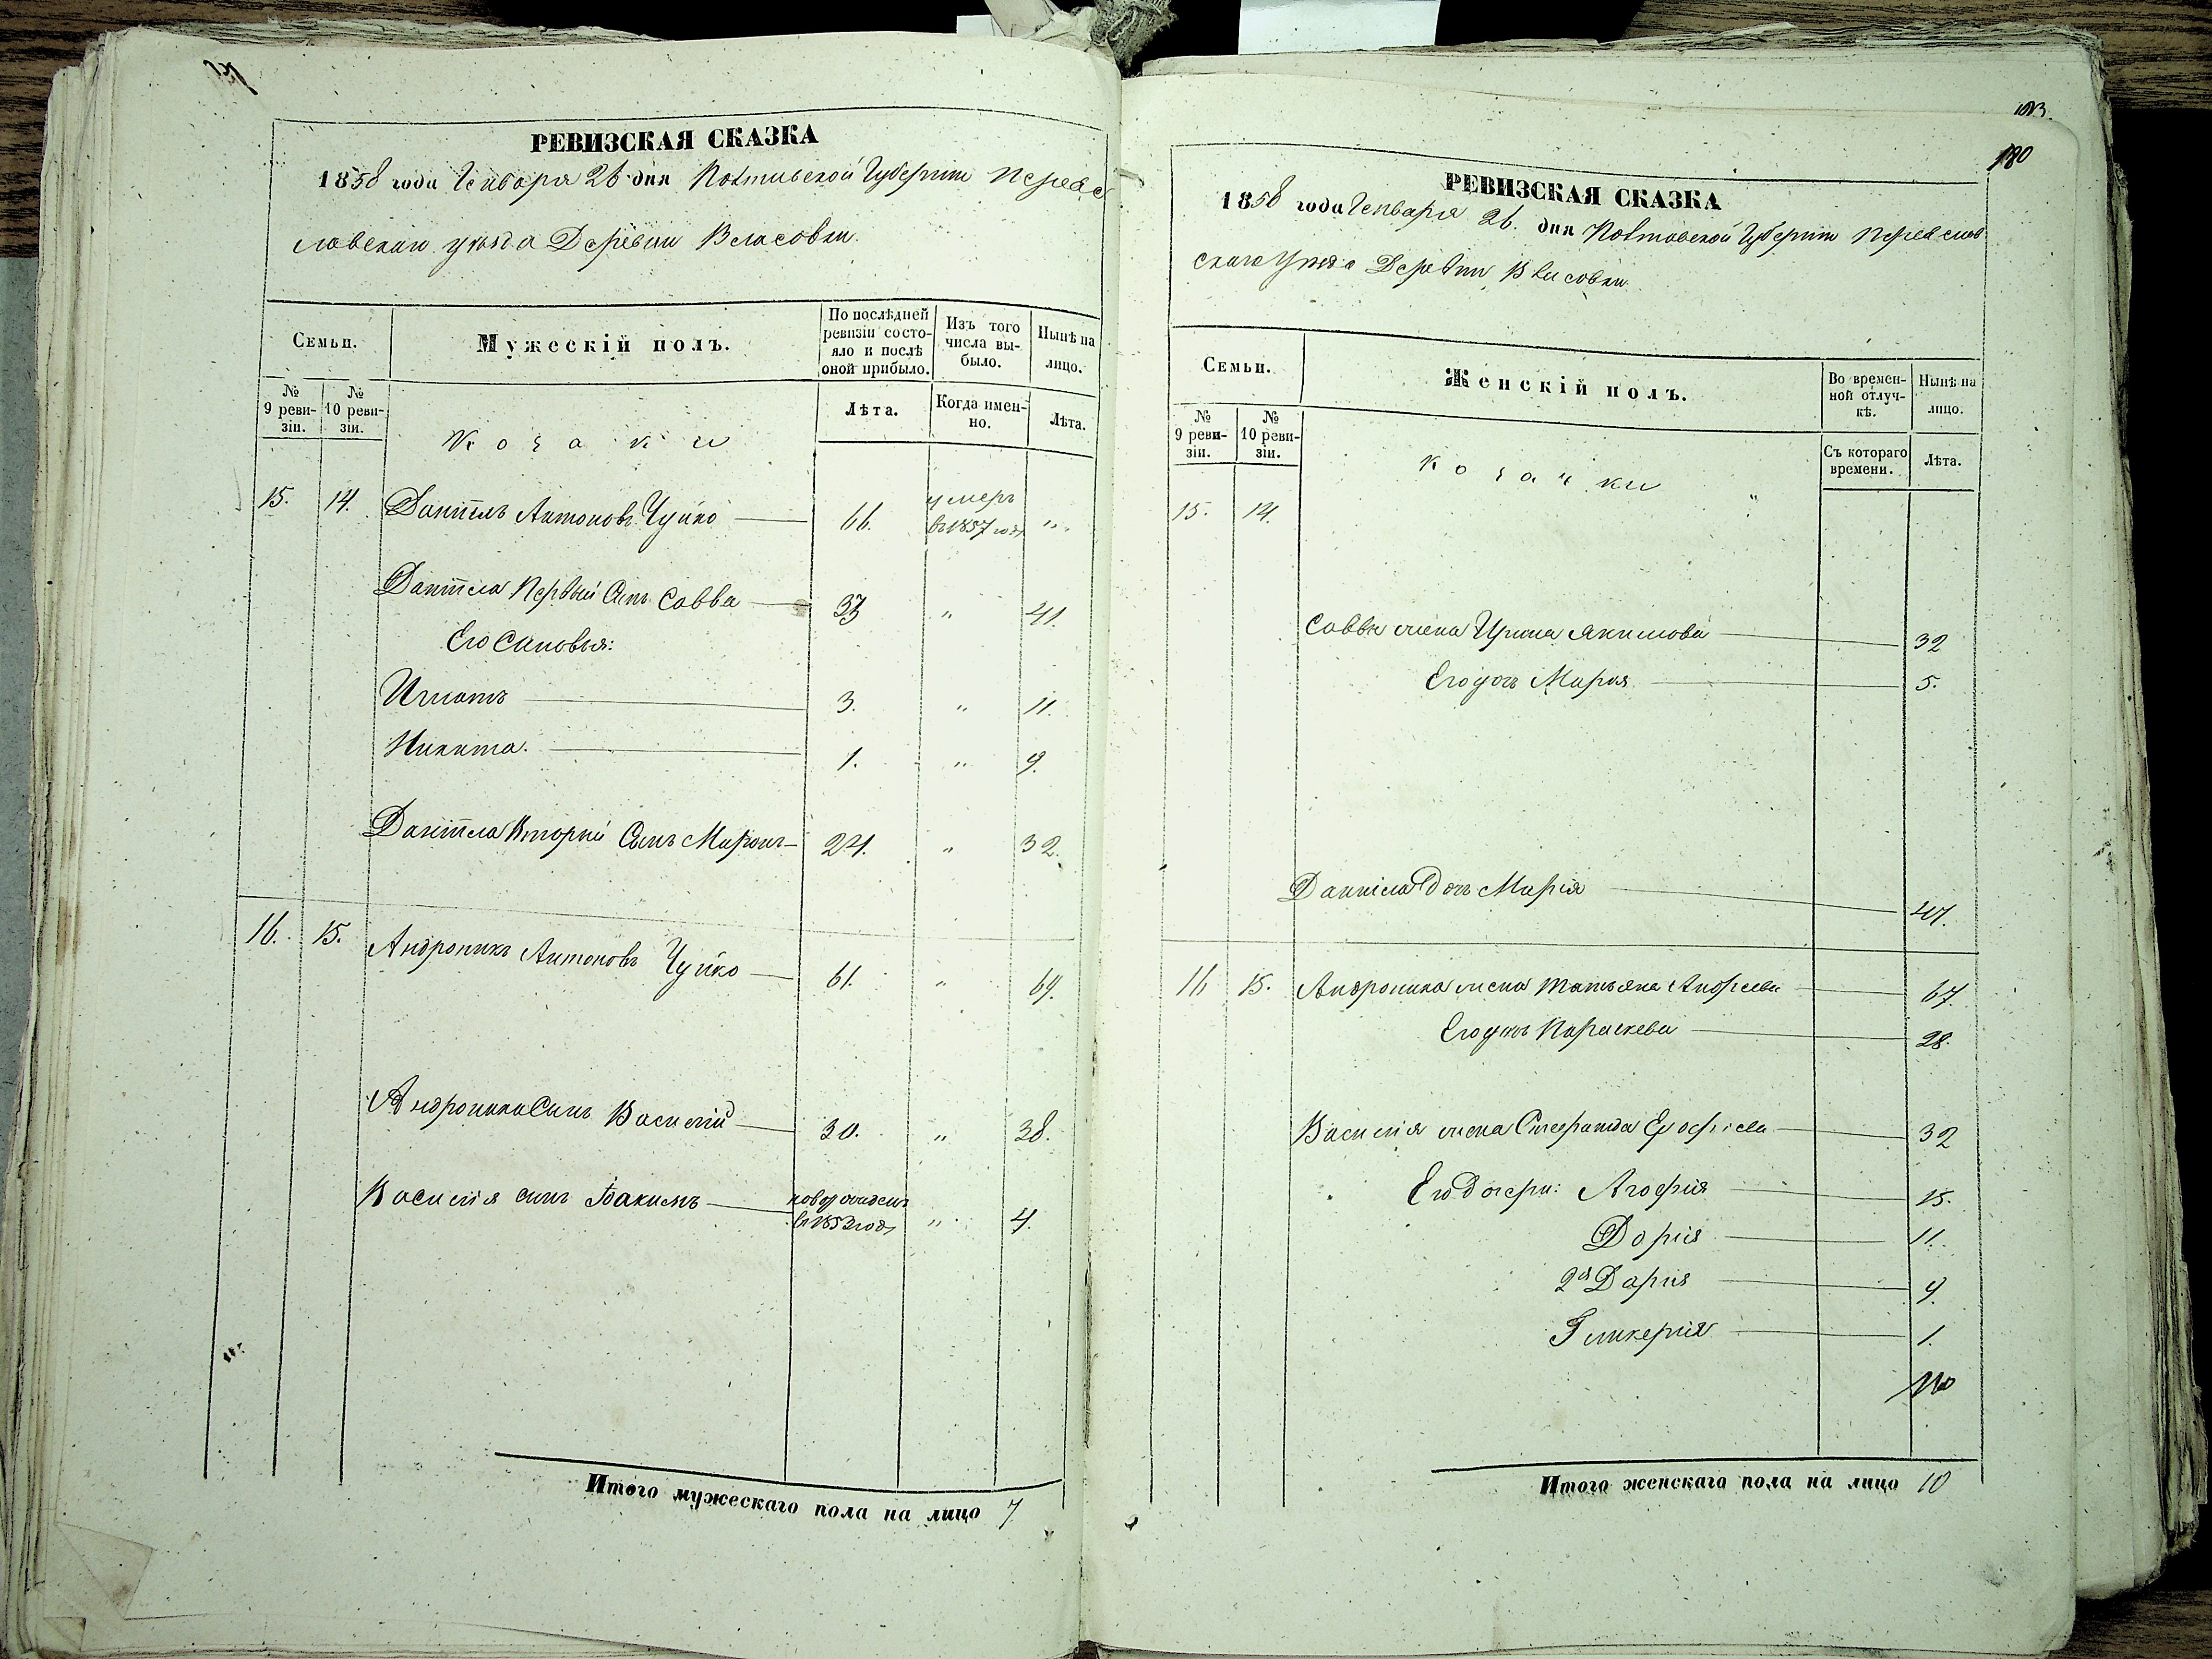 РЕВИЗСКАЯ СКАЗКА
1858 года Генваря 26 дня Полтавской Губернии Переяс
лавскаго уѣзда Деревни Власовки.
Семьи.
Мужескій полъ.
По послѣдней ревизіи состояло и послѣ оной прибыло.
Изъ того числа выбыло.
Нынѣ на лицо.
№ 9 ревизіи.
№ 10 ревизіи.
Козаки
Лѣта.
Когда именно.
Лѣта.
15. 14. Даніилъ Антоновъ Чуйко 66. умеръ въ 1857 году "
Даніила Первый Сынъ Савва 33 " 41.
Его Сыновья:
Игнатъ 3. " 11.
Никита. 1. " 9.
Даніила Вторый Сынъ Миронъ 24. " 32.
16. 15. Андроникъ Антоновъ Чуйко 61. " 69.
Андроника Сынъ Василій 30. " 38.
Василія сынъ Іоакимъ новорожденъ " 4.
Итого мужескаго пола на лицо 7
180
РЕВИЗСКАЯ СКАЗКА
1858 года Генваря 26. дня Полтавской Губернии Переяслав
скаго Уѣзда Деревни Власовки
Семьи.
Женскій полъ.
Во временной отлучкѣ.
Нынѣ на лицо.
№ 9 ревизіи.
№ 10 ревизіи.
Козачки
Съ котораго времени.
Лѣта.
15. 14.
Саввы жена Ирина Якимова 32
Его дочь Мария 5.
Даниіла дочь Марія 47.
16 15. Андроника жена Татьяна Андреева 67.
Его дочь Параскева 28.
Василія жена Стефанида 32
Его дочери: Агафия 15.
Дарія 11.
2я Дария 9.
Гликерия 1.
10
Итого женскаго пола на лицо 10